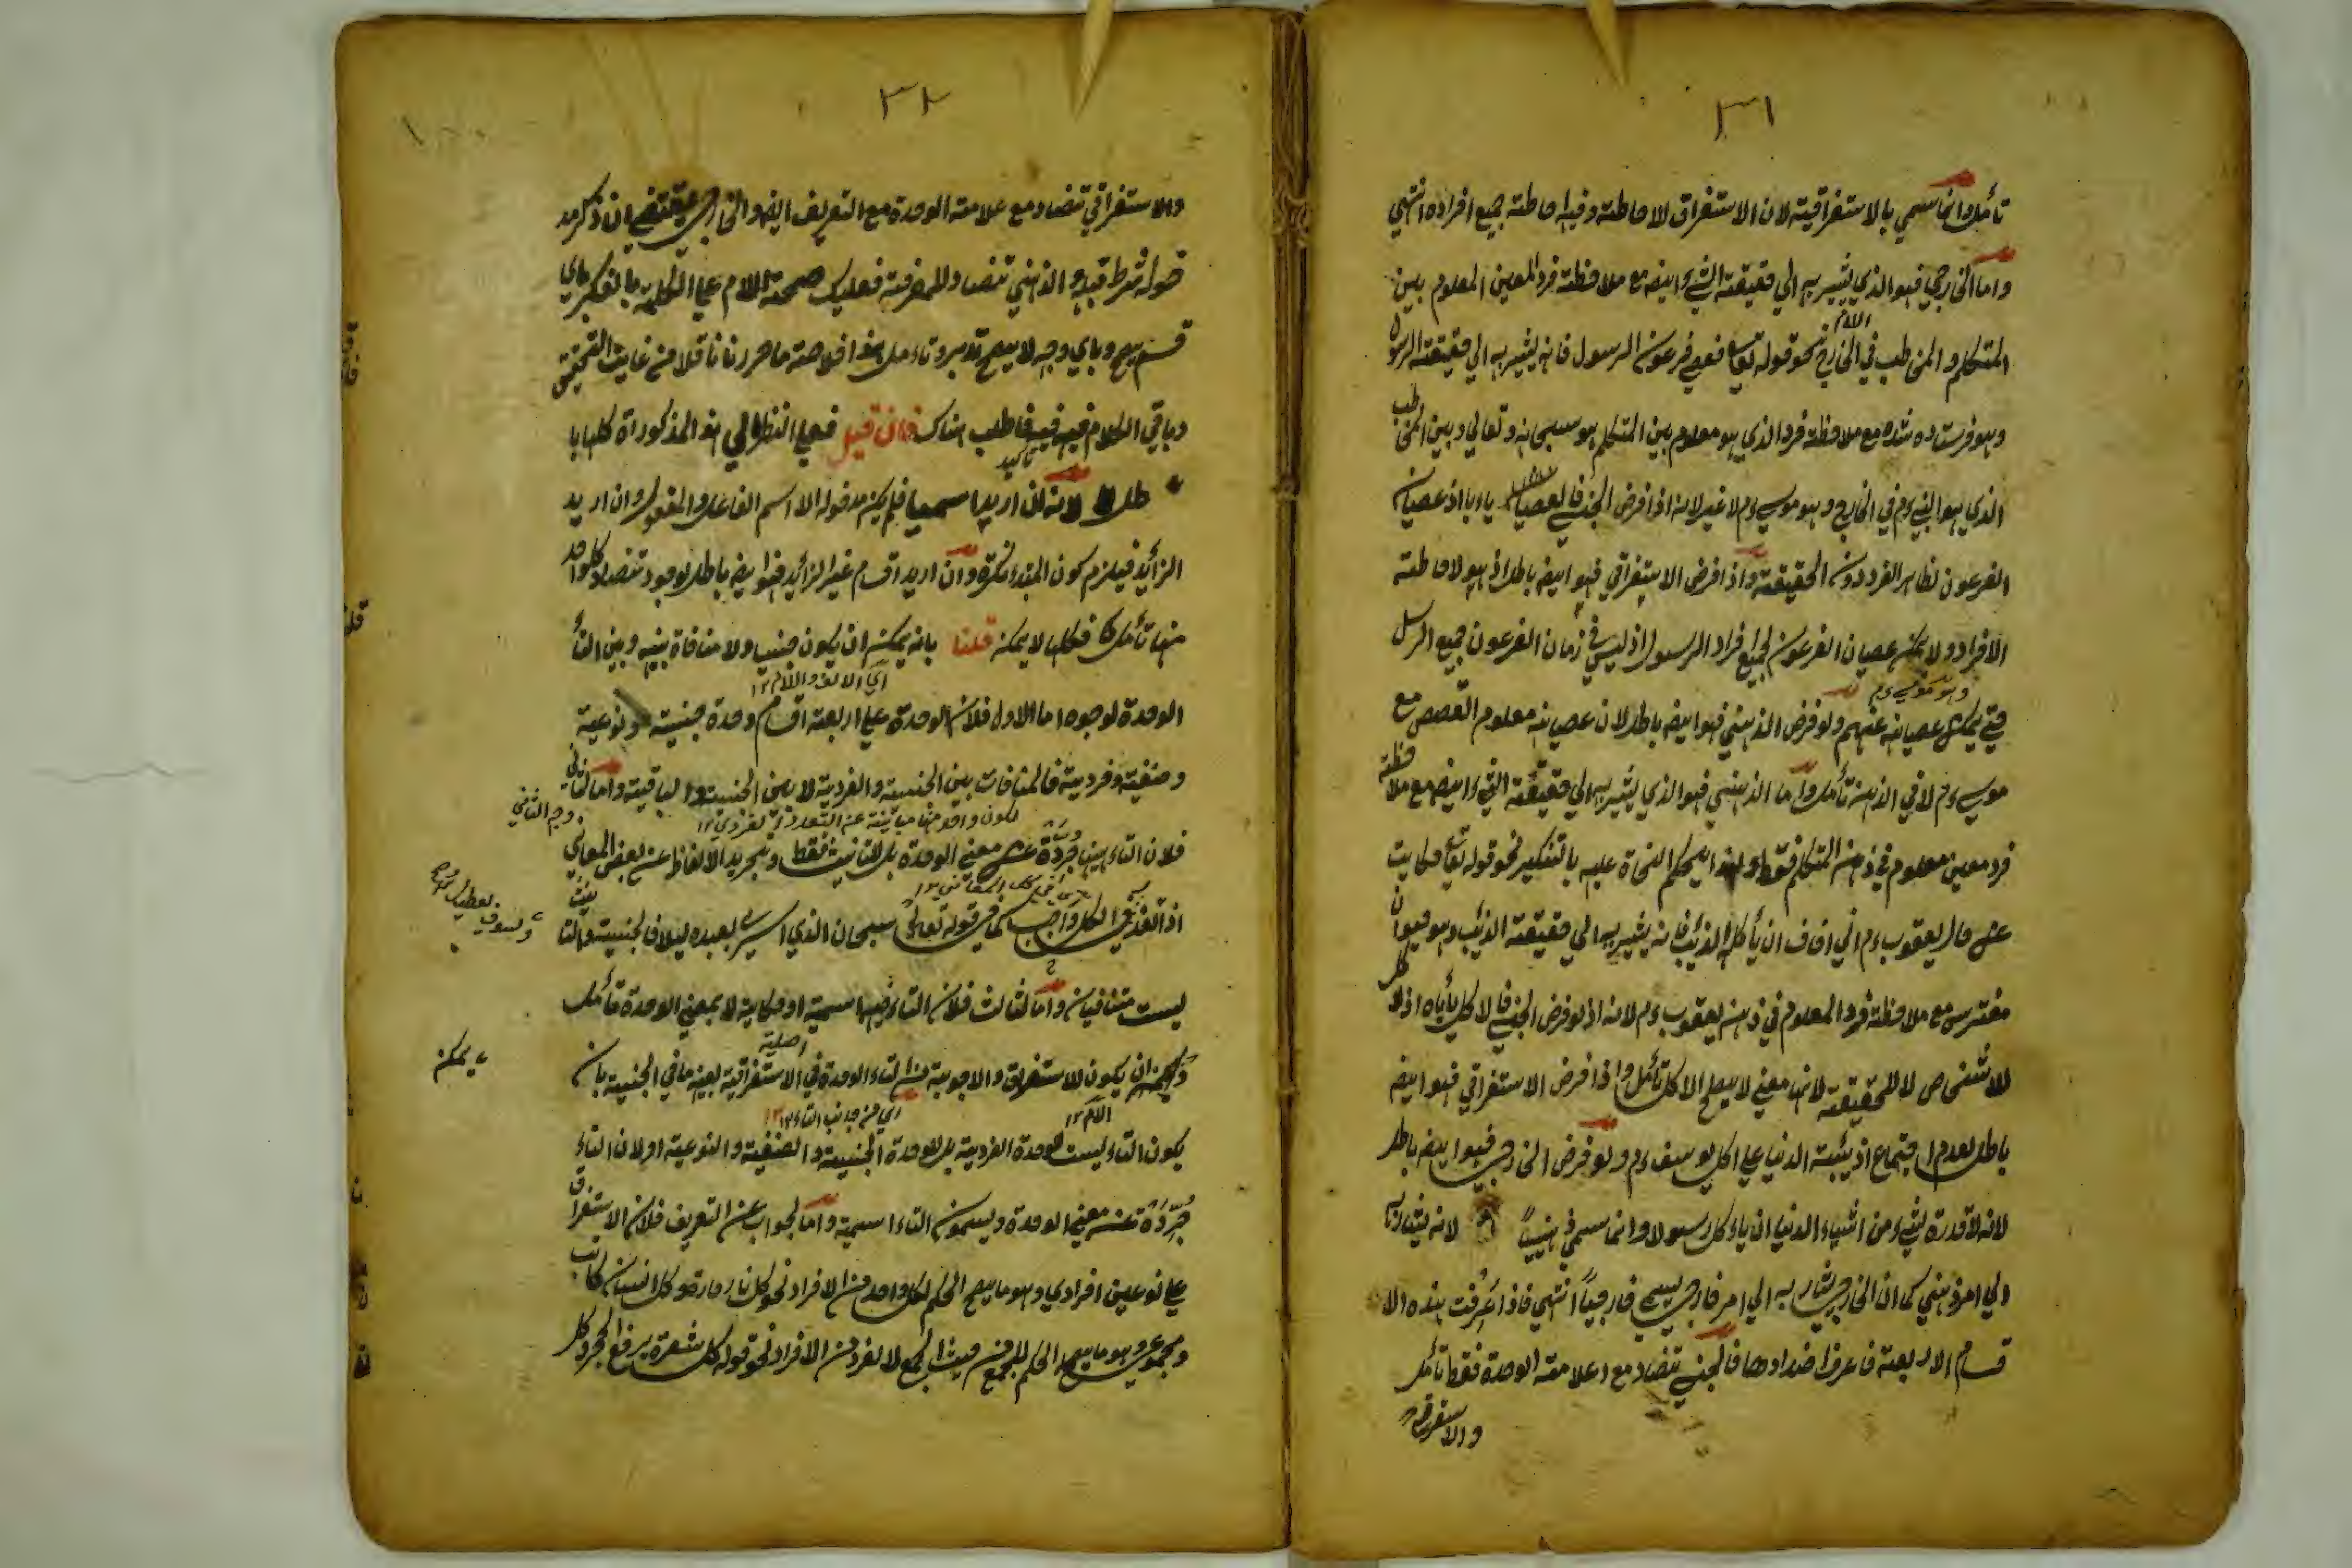 ٣١
تأمل وانما سمي بالاستغراقية لان الاستغراق الاحاطة وفيه احاطة جميع افراده انتهى
واما الخارجي فهو الذي يشير به الي حقيقة الشيء ايضا مع ملاحظة فرد المعين المعلوم بين
المتكلم والمخاطب في الخارج نحو قوله تعالى فعصى فرعون الرسول فانه يشير به الي حقيقة الرسول
وهو فرستاده شده مع ملاحظة فرد الذي هو معلوم بين المتكلم هو سبحانه وتعالي وبين المخاطب
الذي هو النبي ءم في الخارج وهو موسي ءم لا غير لانه اذا فرض الجنسي فالعصيان ياءباه اذ عصيان
الفرعون لظاهر الفرد دون الحقيقة واذا فرض الاستغراقي فهو ايضا باطل اذ هو لاحاطة
الافراد ولا يمكن عصيان الفرعون لجميع افراد الرسول اذ ليس في زمان الفرعون جميع الرسل
وهو موسي ءم
حتي يمكن عصيانه عنهم ولو فرض الذهني فهو ايضا باطل لان عصيانه معلوم القصص مع
موسي ءم لا في الذهن تأمل واما الذهني فهو الذي يشير به الي حقيقة الشيء ايضا مع ملاحظة
فرد معين معلوم في ذهن المتكلم فقط ولهذا يحكم النحاة عليه بالتنكير نحو قوله تعالى حكايت
عن حال يعقوب ءم اني اخاف ان يأكله الذئب فانه يشير به الي حقيقة الذئب وهو حيوان
مفترس مع ملاحظة فرد المعلوم في ذهن يعقوب ءم لانه اذ لو فرض الجنسي فالاكل يأباه اذ الاكل
للاشخاص لا للحقيقة لانها معني لا يصلح الاكل تأمل واذا فرض الاستغراقي فهو ايضا
باطل لعدم اجتماع اذئبة الدنيا علي اكل يوسف ءم ولو فرض الخارجي فهو ايضا باطل
لانه لا قدرة لشيء من اشياء الدنيا ان ياءكل رسولا وانما سمي ذهنيًا لانه يشار به
الي امر ذهني كما ان الخارجي يشار به الي امر خارجي يسمي خارجيًا انتهي فاذا عرفت هذه الا
قسام الاربعة فاعرف اضدادها فالجنسي تضاد مع علامة الوحدة فقط تأمل
والاستغراقي
٣٢
والاستغراقي تضاد مع علامة الوحدة مع التعريف ايضا والخارجي يقتضي ان ذكر مد
خوله شرط قبله والذهني تضاد للمعرفة فعليك صحة اللام علي الكلمة بالفكر باي
قسم يصح وباي وجه لا يصح تدبر وتاءمل هذا خلاصة ما حررنا ناقلا من غايت التحقيق
وباقي الكلام فيه فاطلب هناك فان قيل فعلي النظر الي هذا المذكورات كلها با
طل لانه ان اريد اسميا فلم يكن مدخوله الا اسم الفاعل والمفعول وان اريد
الزائد فيلزم كون المبتداء نكرة وان اريد اقسام غير الزائد فهو ايضا باطل لوجود تضاد كل واحد
منها تأمل فكلها لا يمكن قلنا بانه يمكن ان يكون جنسيا ولا منافاة بينه وبين التاء
اي الالف واللام ١٢
الوحدة لوجوه اما الاول فلان الوحدة علي اربعة اقسام وحدة جنسية ونوعية
وصنفية وفردية فالمنافات بين الجنسية والفردية لا بين الجنسية والباقية واما الثاني
وجه الثاني
فلان التاء ههنا مجردة عن معني الوحدة بل للتانيث فقط وتجريد الالفاظ عن بعض المعاني
في قوله تعالى سبحان الذي اسري بعبده ليلا فالجنسية والتا
نيث
ليست متنافيان واما الثالث فلان التاء فيها اسمية او حكاية لا بمعني الوحدة تأمل
اصلية
ويمكن ان يكون للاستغراق والاجوبة من التاء الوحدة في الاستغراقية بعينه ما في الجنسية بان
يمكن
اي من جانب التاء ١٢
يكون التاء ليست للوحدة الفردية بل للوحدة الجنسية والصنفية والنوعية او لان التاء
مجردة عن معني الوحدة ويسمون التاء اسمية واما الجواب عن التعريف فلان الاستغراق
علي نوعين افرادي وهو ما يصح الحكم لكل واحد من الافراد نحو كل نار حارة وكل انسان كاتب
ومجموعي وهو ما يصح الحكم للجميع من حيث الجمع لا لفرد من الافراد نحو قوله كل شعرة يرفع الحجر وكل